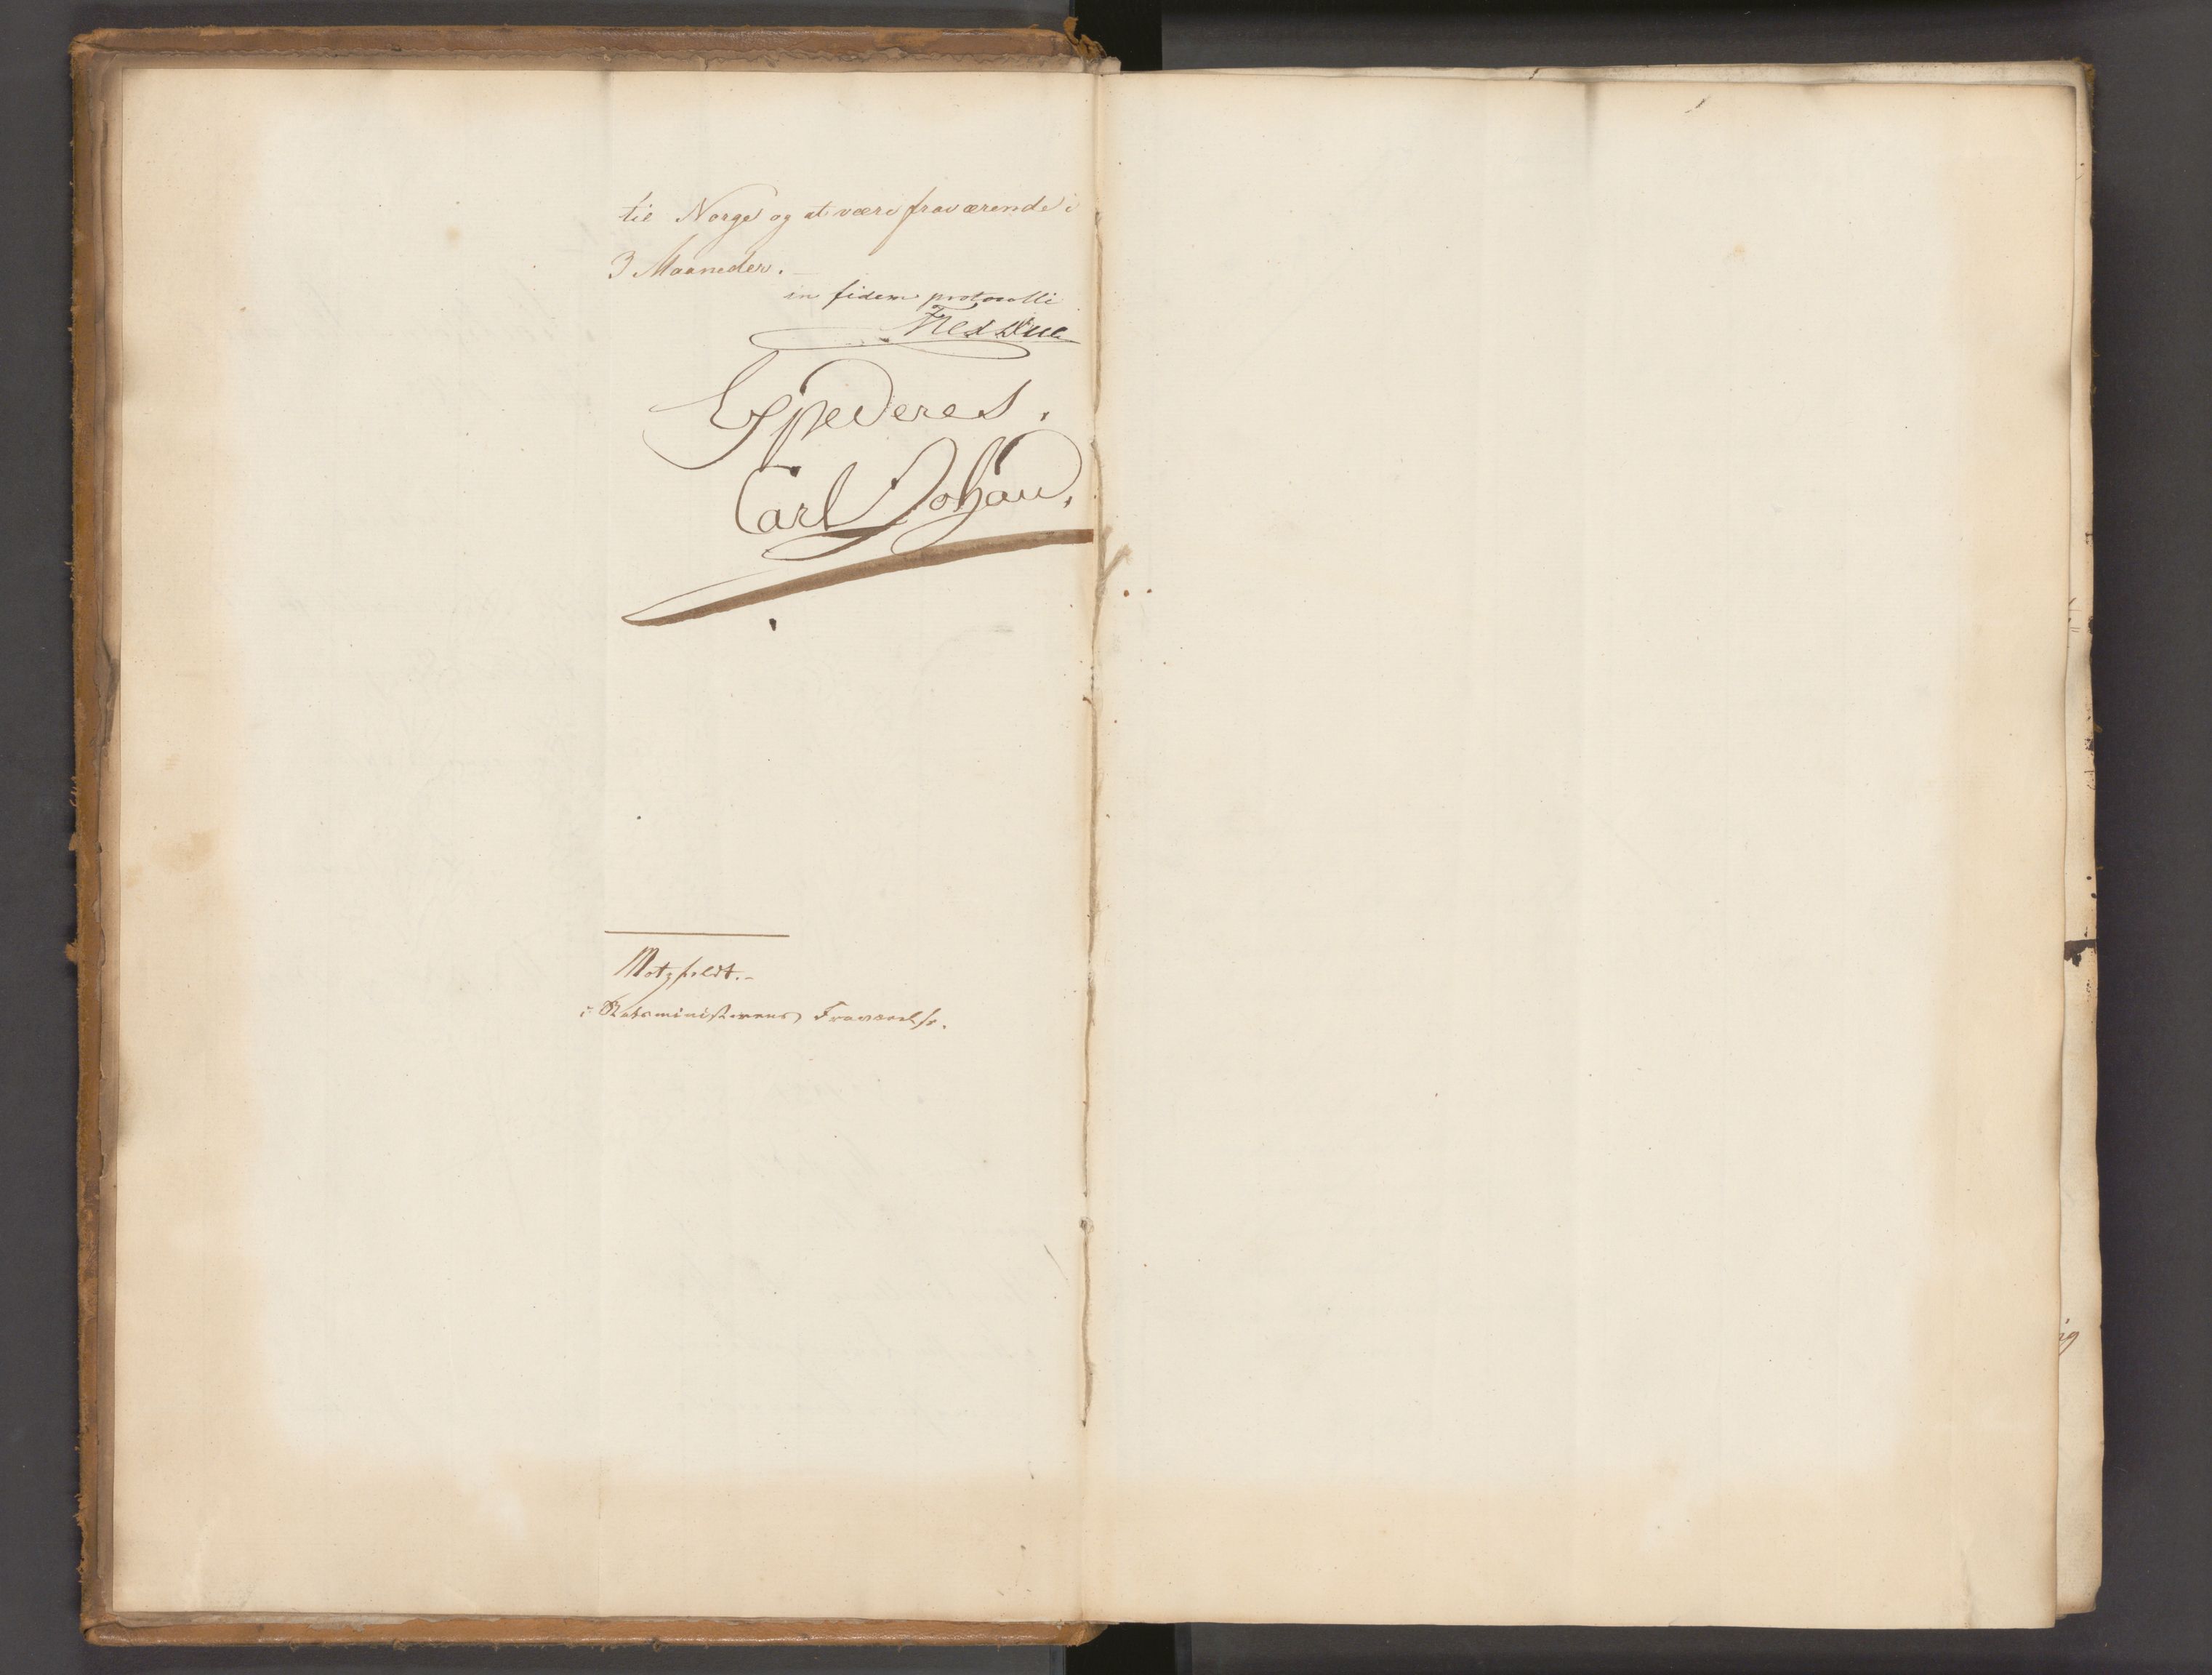 til Norge og at være fraværende i
3 Maaneder.
in fidem protocolli
Fred Due
Expederes.
Carl Johan.
Motzfeldt.-
i Statsministerens Fraværelse.
ig